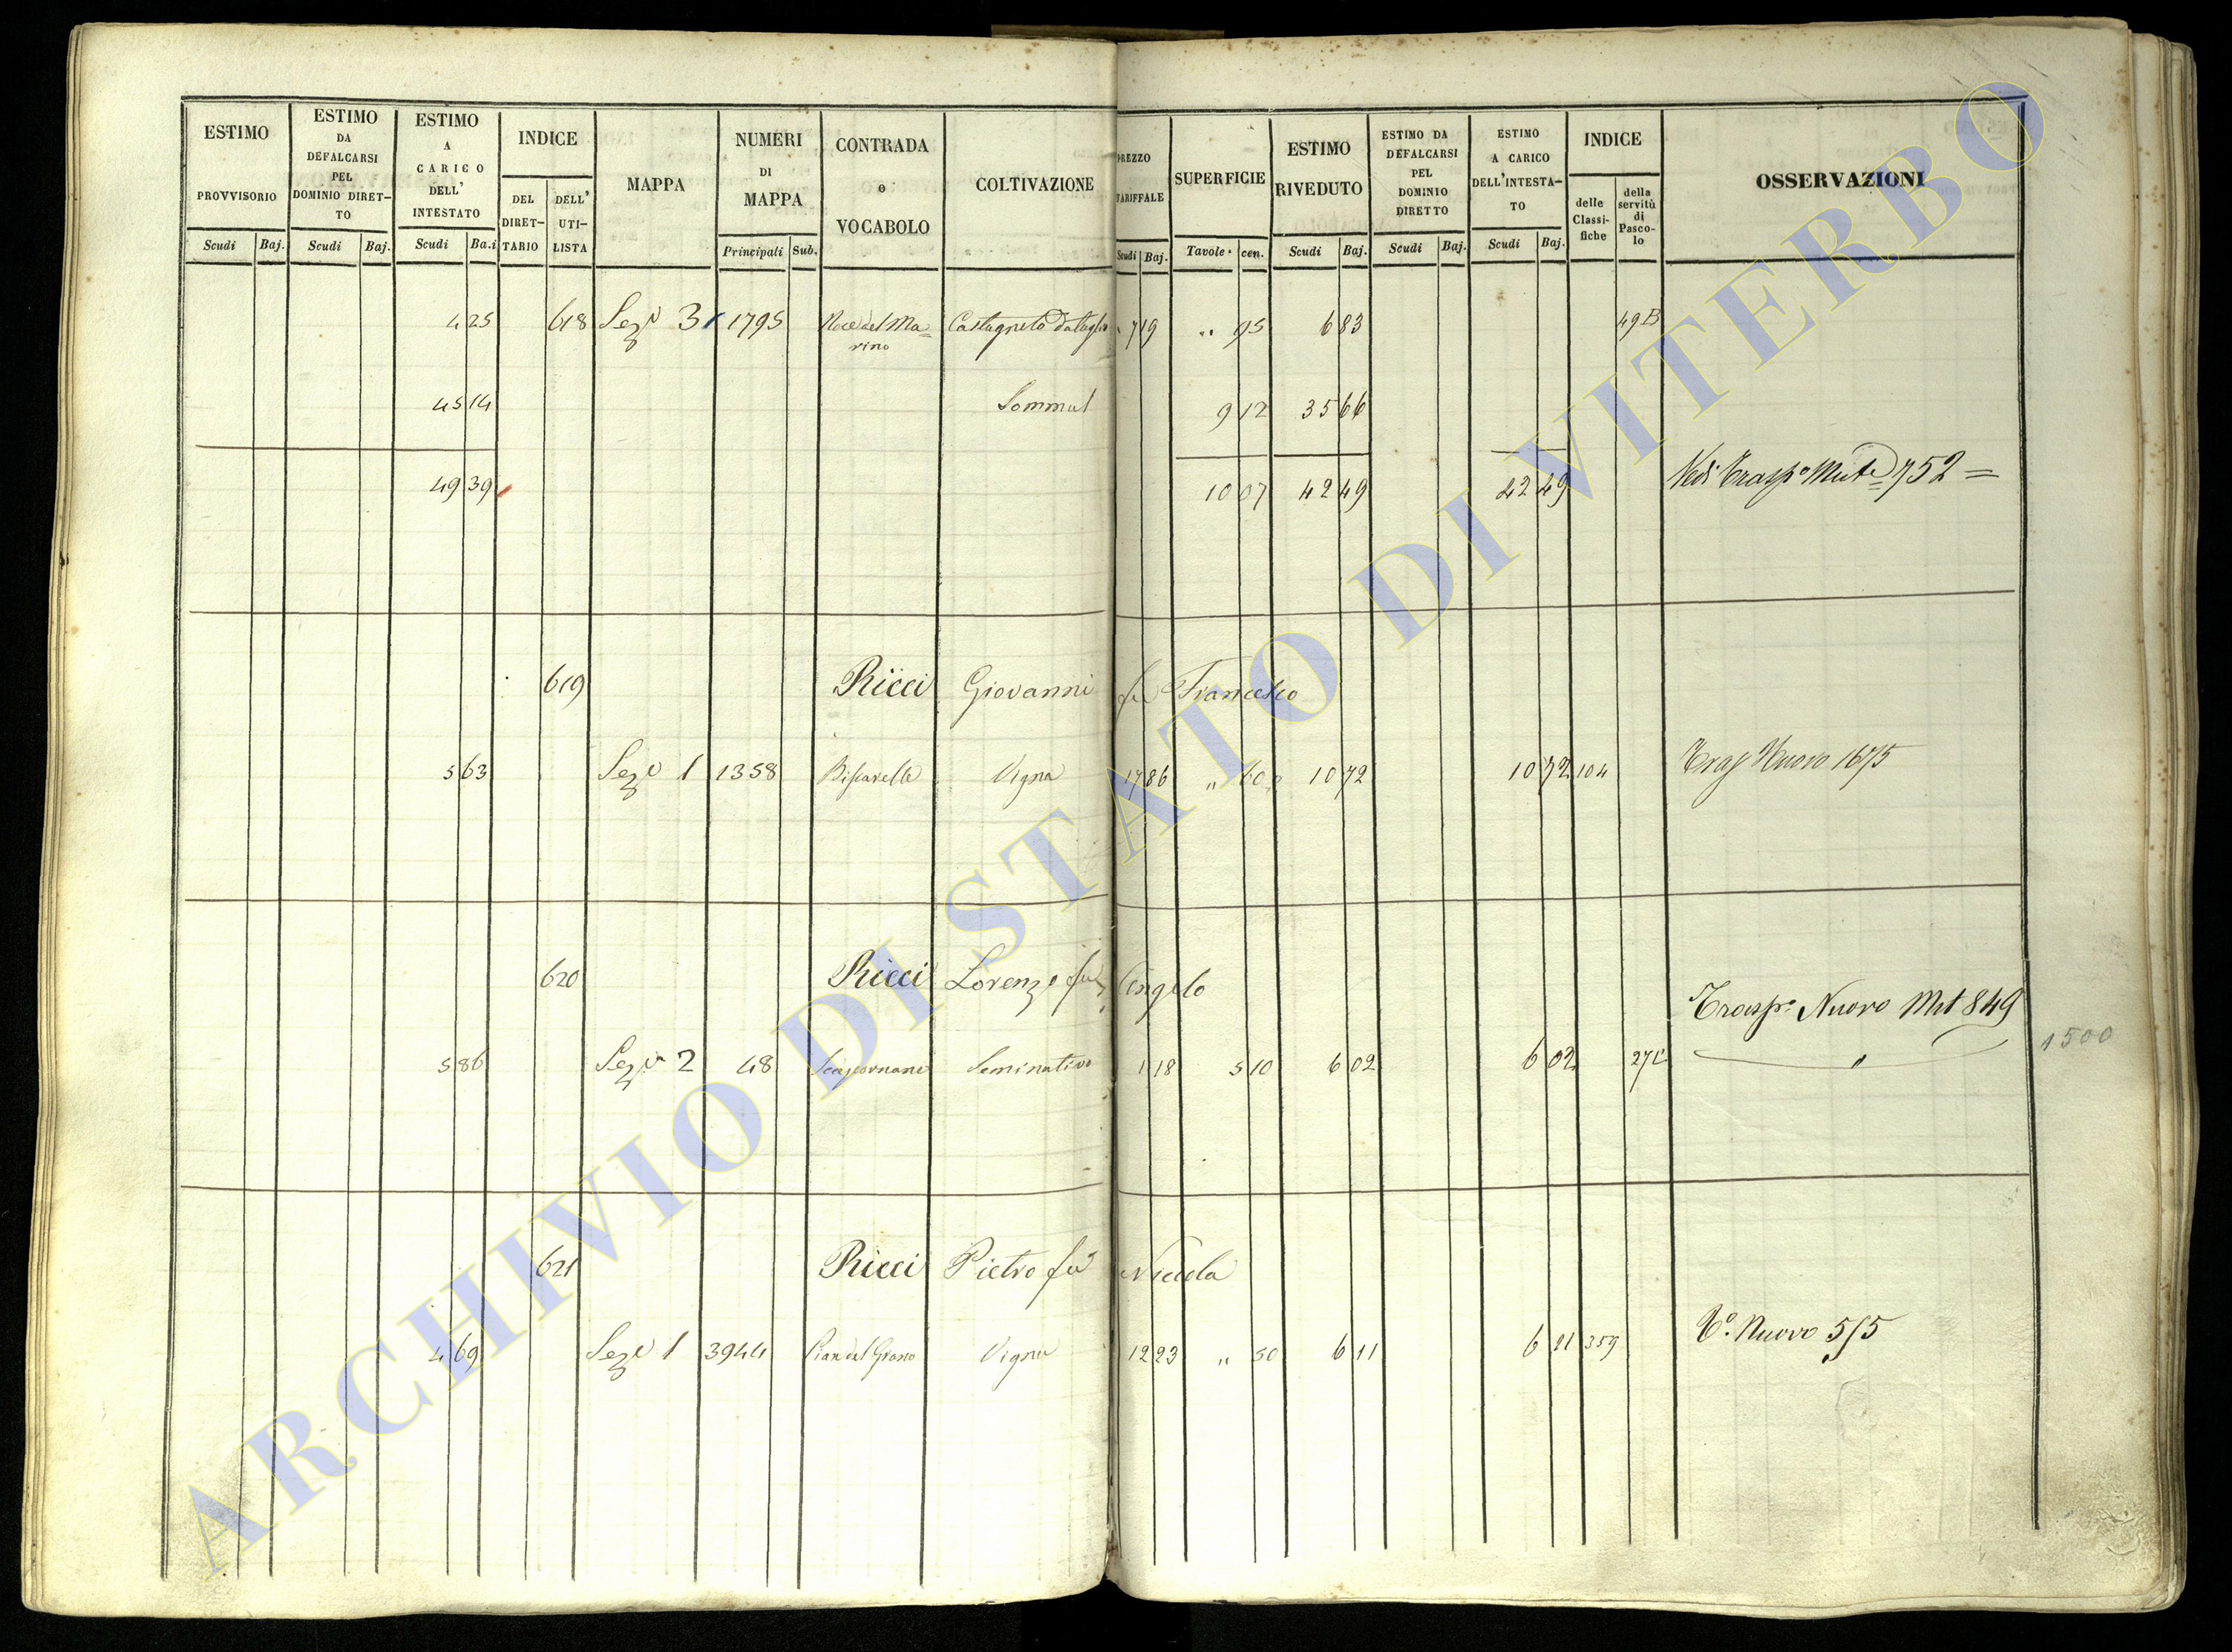 ESTIMO PROVVISORIO
ESTIMO DA DEFALCARSI PEL DOMINIO DIRET–TO
ESTIMO A CARICO DELL' INTESTATO
INDICE
MAPPA
NUMERI DI MAPPA
CONTRADA o VOCABOLO
COLTIVAZIONE
PREZZO TARIFFALE
SUPERFICIE
ESTIMO RIVEDUTO
ESTIMO DA DEFALCARSI PEL DOMINIO DIRETTO
ESTIMO A CARICO DELL'INTESTA–TO
INDICE
OSSERVAZIONI
DEL DIRET–TARIO
DELL' UTI–LISTA
delle Classi-fiche
della servitù di Pasco-lo
Scudi Baj. Scudi Baj. Scudi Ba.i Principali Sub. Scudi Baj. Tavole. cen. Scudi Baj. Scudi Baj. Scudi Baj.
4 25 618 Sez.e 3 1795 Noce del Ma= Castagneto da taglio " 719 " 95 6 83 49B
rino
45 14 Sommal 9 12 35 66
49 39 10 07 42 49 42 49 Vedi Trasp.o Mut.e 752 =
619 Ricci Giovanni fu Francesco
5 63 Sez.e 1 1358 Vigna 17 86 " 60 10 72 10 72 104 Trasp Nuovo 1675
620 Ricci Lorenzo fu Angelo
Trasp.o Nuovo Mut 849
1500
5 86 Sez.e 2 48 Seminativo 1 18 5 10 6 02 6 02
621 Ricci Pietro fu Niccola
4 69 Sez.e 1 3944 Pian del Grano Vigna 12 23 " 50 6 11 6 11 359 T.o Nuovo 515
ARCHIVIO DI STATO DI VITERBO